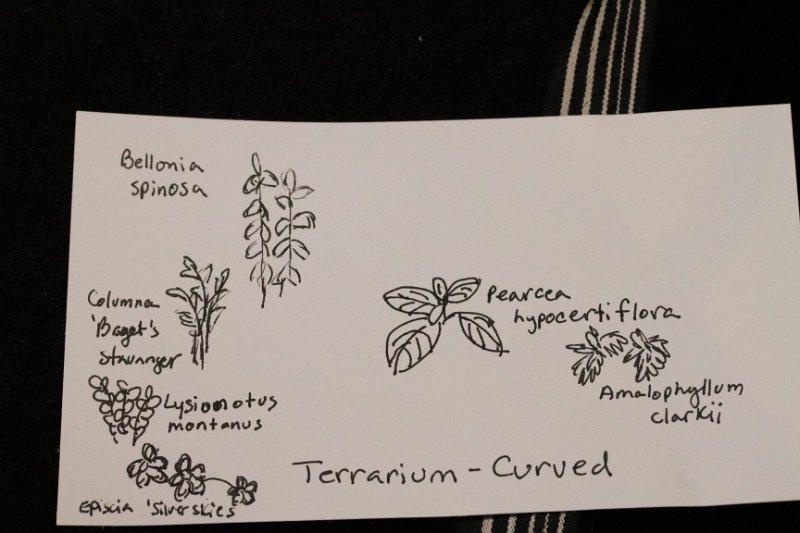 Bellonia
spinosa
Columna
'Baget's
Stavanger
Lysionotus
montanus
Episcia 'Silver skies'
Pearcea
hypocertiflora
Amalophyllum
clarkii
Terrarium - Curved